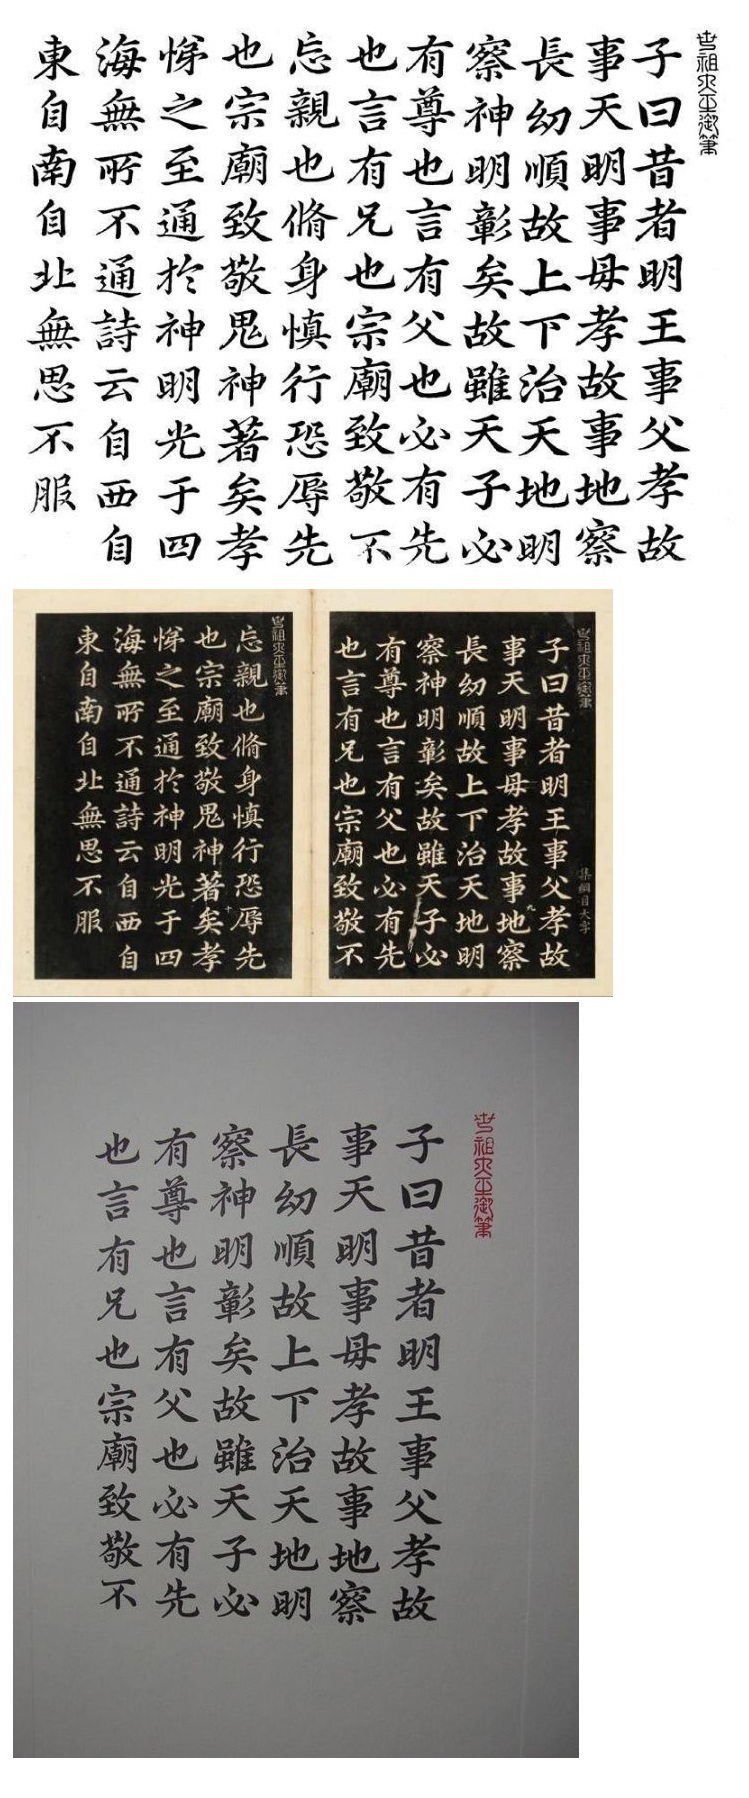 世祖大王御筆
子曰昔者明王事父孝故
事天明事母孝故事地察
長幼順故上下治天地明
察神明彰矣故雖天子必
有尊也言有父也必有先
也言有兄也宗廟致敬不
忘親也脩身慎行恐辱先
也宗廟致敬鬼神著矣孝
悌之至通於神明光于四
海無所不通詩云自西自
東自南自北無思不服
世祖大王御筆
集綱目大字
子曰昔者明王事父孝故
事天明事母孝故事地察
長幼順故上下治天地明
察神明彰矣故雖天子必
有尊也言有父也必有先
也言有兄也宗廟致敬不
世祖大王御筆
忘親也脩身慎行恐辱先
也宗廟致敬鬼神著矣孝
悌之至通於神明光于四
海無所不通詩云自西自
東自南自北無思不服
世祖大王御筆
子曰昔者明王事父孝故
事天明事母孝故事地察
長幼順故上下治天地明
察神明彰矣故雖天子必
有尊也言有父也必有先
也言有兄也宗廟致敬不